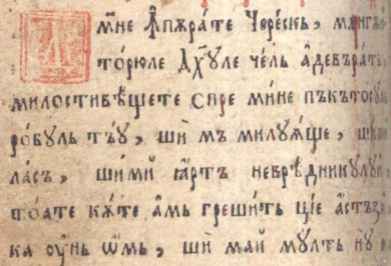 мⷩ҇не Ꙟпѫра́те Чере́скь, мѫнгѫи
то́рюле Дх҃ꙋле че́ль а̓деврать
милостивѣ́ѱете спре ми́не пъкъто́сꙋл
ро́бꙋль тъ́ꙋ, ши мъ милꙋꙗ́ще, ши
ла́съ, ши́ми ꙗ҆́ртъ невре́дникꙋлꙋи,
то́ате кѫ́те а҆́мь греши́ть ціе а҆стъ́з
ка ᲂу҆́нь ѡ҆́мь, ши ма́й мꙋ́лть нꙋ к